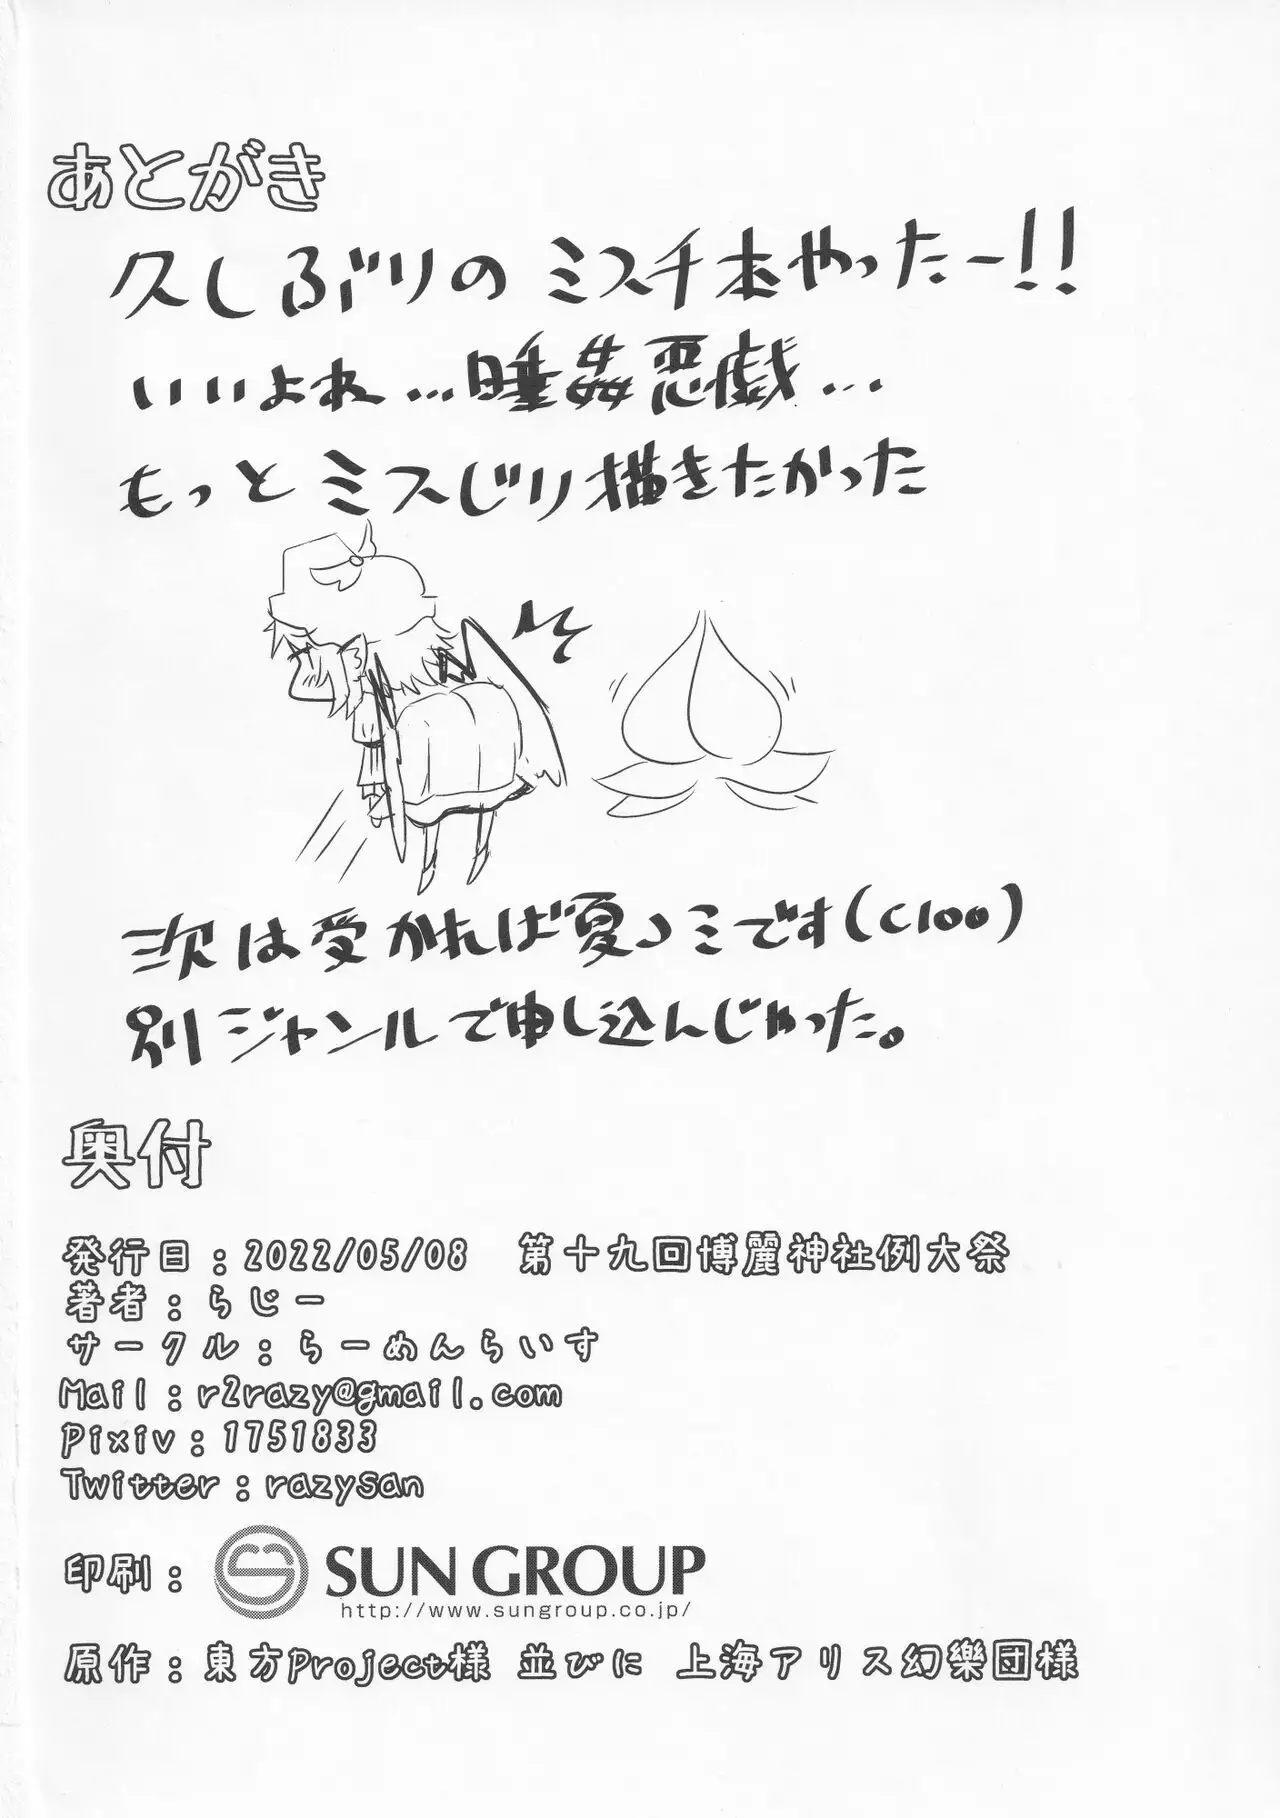 あとがき
久しぶりのミスチ本やったー!!
いいよね...睡姦悪戯...
もっとミスじり描きたかった
次は受かれば夏コミです(C100)
別ジャンルで申し込んじゃった。
奥付
発行日：2022/05/08　第十九回博麗神社例大祭
著者：らじー
サークル：らーめんらいす
Mail：r2razy@gmail.com
Pixiv：1751833
Twitter：razysan
印刷： SUN GROUP
http://www.sungroup.co.jp/
原作：東方Project様 並びに 上海アリス幻樂団様